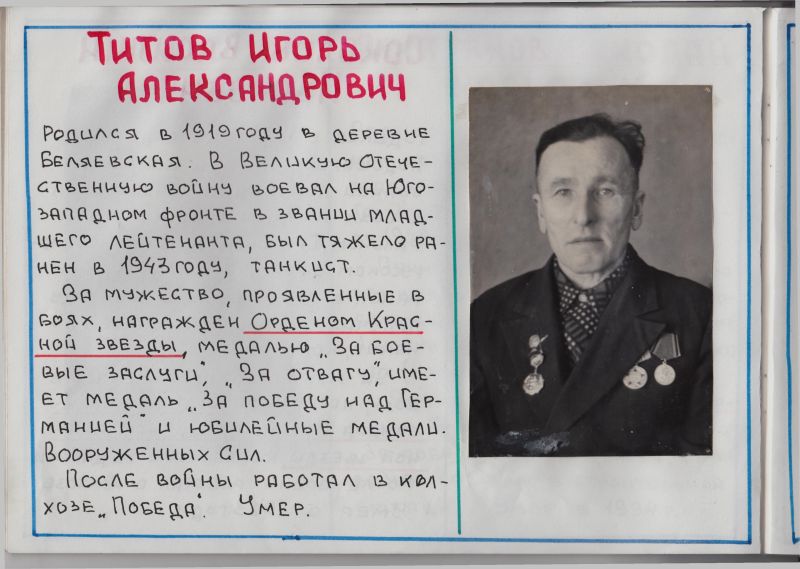 ТИТОВ ИГОРЬ
АЛЕКСАНДРОВИЧ
РОДИЛСЯ В 1919 ГОДУ В ДЕРЕВНЕ
БЕЛЯЕВСКАЯ. В ВЕЛИКУЮ ОТЕЧЕ-
СТВЕННУЮ ВОЙНУ ВОЕВАЛ НА ЮГО-
ЗАПАДНОМ ФРОНТЕ В ЗВАНИИ МЛАД-
ШЕГО ЛЕЙТЕНАНТА, БЫЛ ТЯЖЕЛО РА-
НЕН В 1943 ГОДУ, ТАНКИСТ.
ЗА МУЖЕСТВО, ПРОЯВЛЕННЫЕ В
БОЯХ, НАГРАЖДЕН ОРДЕНОМ КРАС-
НОЙ ЗВЕЗДЫ, МЕДАЛЬЮ „ЗА БОЕ-
ВЫЕ ЗАСЛУГИ", „ЗА ОТВАГУ", ИМЕ-
ЕТ МЕДАЛЬ „ЗА ПОБЕДУ НАД ГЕР-
МАНИЕЙ" И ЮБИЛЕЙНЫЕ МЕДАЛИ.
ВООРУЖЕННЫХ СИЛ.
ПОСЛЕ ВОЙНЫ РАБОТАЛ В КОЛ-
ХОЗЕ „ПОБЕДА". УМЕР.